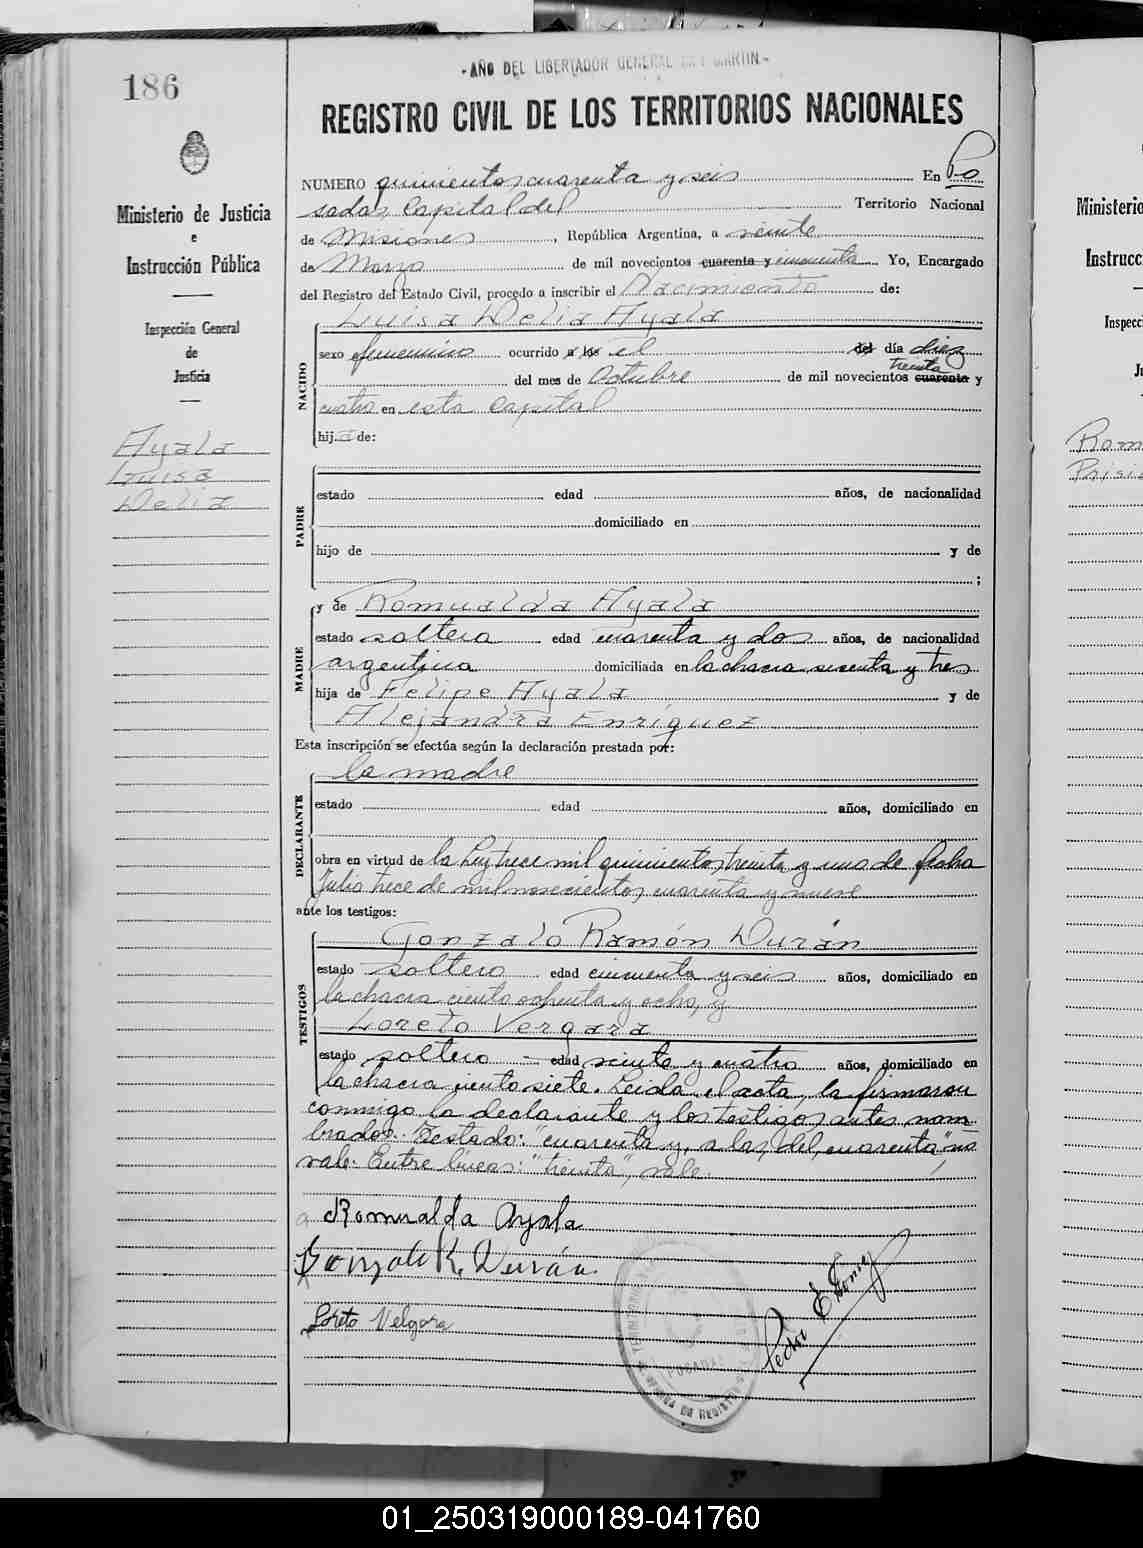 186
- AÑO DEL LIBERTADOR GENERAL SAN MARTIN -
REGISTRO CIVIL DE LOS TERRITORIOS NACIONALES
Ministerio de Justicia
e
Instrucción Pública
Inspección General
de
Justicia
Ayala
Luisa
Delia
NUMERO quinientos cuarenta y seis En Po
sadas, Capital del Territorio Nacional
de Misiones, República Argentina, a veinte
de Marzo de mil novecientos cuarenta y cincuenta Yo, Encargado
del Registro del Estado Civil, procedo a inscribir el Nacimiento de:
NACIDO
Luisa Delia Ayala
sexo femenino ocurrido a las el del día diez
treinta
del mes de Octubre de mil novecientos cuarenta y
cuatro en esta Capital
hija de:
PADRE
estado edad años, de nacionalidad
domiciliado en
hijo de y de
;
MADRE
y de Romualda Ayala
estado soltera edad cuarenta y dos años, de nacionalidad
argentina domiciliada en la chacra sesenta y tres
hija de Felipe Ayala y de
Alejandra Enríquez
Esta inscripción se efectúa según la declaración prestada por:
DECLARANTE
la madre
estado edad años, domiciliado en
obra en virtud de la Ley trece mil quinientos treinta y uno de fecha
Julio trece de mil novecientos cuarenta y nueve
ante los testigos:
TESTIGOS
Gonzalo Ramón Durán
estado soltero edad cincuenta y seis años, domiciliado en
la chacra ciento ochenta y ocho, y
Loreto Vergara
estado soltero - edad veinte y cuatro años, domiciliado en
la chacra ciento siete. Leida el acta, la firmaron
conmigo la declarante y los testigos antes nom-
brados. Testado: "cuarenta y, a las, del, cuarenta" no
vale. Entre líneas: "treinta", vale.
Romualda Ayala
Gonzalo R. Durán
Loreto Velgara
Pedro E. Gomez
POSADAS
Romu
Prisi
Ministerio
Instrucc
Inspecci
Ju
01_250319000189-041760